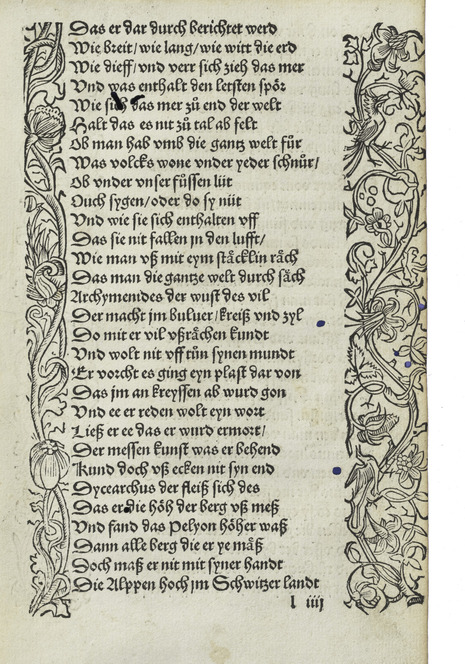 Das er dar durch berichtet werd
Wie breit/ wie lang/ wie witt die erd
Wie dieff/ vnd verr sich zieh das mer
Vnd was enthalt den letsten spör
Wie sich das mer zů end der welt
Halt das es nit zů tal ab felt
Ob man hab vmb die gantz welt fůr
Was volcks wone vnder yeder schnůr/
Ob vnder vnser füssen lüt
Ouch sygen/ oder do sy nüt
Vnd wie sie sich enthalten vff
Das sie nit fallen jn den lufft/
Wie man vß mit eym stäcklin räch
Das man die gantze welt durch säch
Archymenides der wust des vil
Der macht jm buluer/ kreiß vnd zyl
Do mit er vil vßrächen kundt
Vnd wolt nit vff tůn synen mundt
Er vorcht es ging eyn plast dar von
Das jm an kreyssen ab wurd gon
Vnd ee er reden wolt eyn wort
Ließ er ee das er wurd ermort/
Der messen kunst was er behend
Kund doch vß ecken nit syn end
Dycearchus der fleiß sich des
Das er die höh der berg vß meß
Vnd fand das Pelyon höher waß
Dann alle berg die er ye mäß
Doch maß er nit mit syner handt
Die Alppen hoch jm Schwitzer landt
l iiij